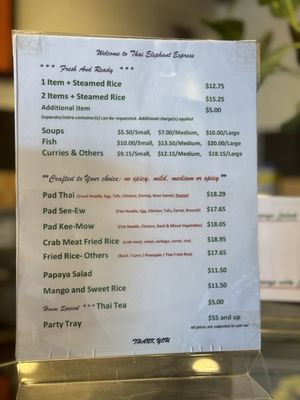 Welcome to Thai Elephant Express
*** Fresh And Ready ***
1 Item + Steamed Rice $12.75
2 Items + Steamed Rice $15.25
Additional Item $5.00
Separate/extra container(s) can be requested. Additional charge(s) applied
Soups $5.50/Small, $7.00/Medium, $10.00/Large
Fish $10.00/Small, $13.50/Medium, $20.00/Large
Curries & Others $9.15/Small, $12.15/Medium, $18.15/Large
**Crafted to Your choice: no spicy, mild, medium or spicy **
Pad Thai (Small Noodle, Egg, Tofu, Chicken, Shrimp, Bean Sprout, Peanut) $18.29
Pad See-Ew (Flat Noodle, Egg, Chicken, Tofu, Carrot, Broccoli) $17.65
Pad Kee-Mow (Flat Noodle, Chicken, Basil & Mixed Vegetables) $18.05
Crab Meat Fried Rice (crab meat, onion, carrots, rice) $18.95
Fried Rice- Others (Basil / Curry / Pineapple / Thai Fried Rice) $17.65
Papaya Salad $11.50
Mango and Sweet Rice $11.50
House Special *** Thai Tea $5.00
Party Tray $55 and up
All prices are subjected to sale tax
THANK YOU